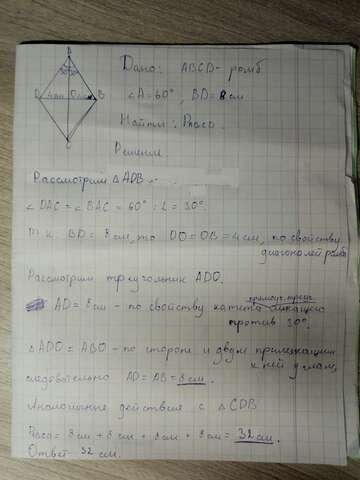 A
30° 30°
D 4см O 4см B
C
Дано: ABCD - ромб
∠A = 60°, BD = 8 см
Найти: Pавсд
Решение
Рассмотрим △ADB
∠DAC = ∠BAC = 60° : 2 = 30°
т.к. BD = 8 см, то DO = OB = 4 см, по свойству
диагоналей ромба
Рассмотрим треугольник ADO.
AD = 8 см - по свойству катета лежащего
против 30°.
△ADO = ABO - по стороне и двум прилежащим
к ней углам,
следовательно AD = AB = 8 см.
Аналогичные действия с △CDB
Pавсд = 8 см + 8 см + 8 см + 8 см = 32 см.
Ответ 32 см.